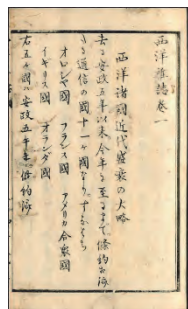 西洋雑誌巻一
西洋諸国近代盛衰の大略
去る安政五年以来今年に至るまで條約を済
通信の國十一ヶ國なり
オロシヤ國 フランス國 アメリカ合衆國
イギリス國 オランダ國
右五ヶ國ハ安政五年